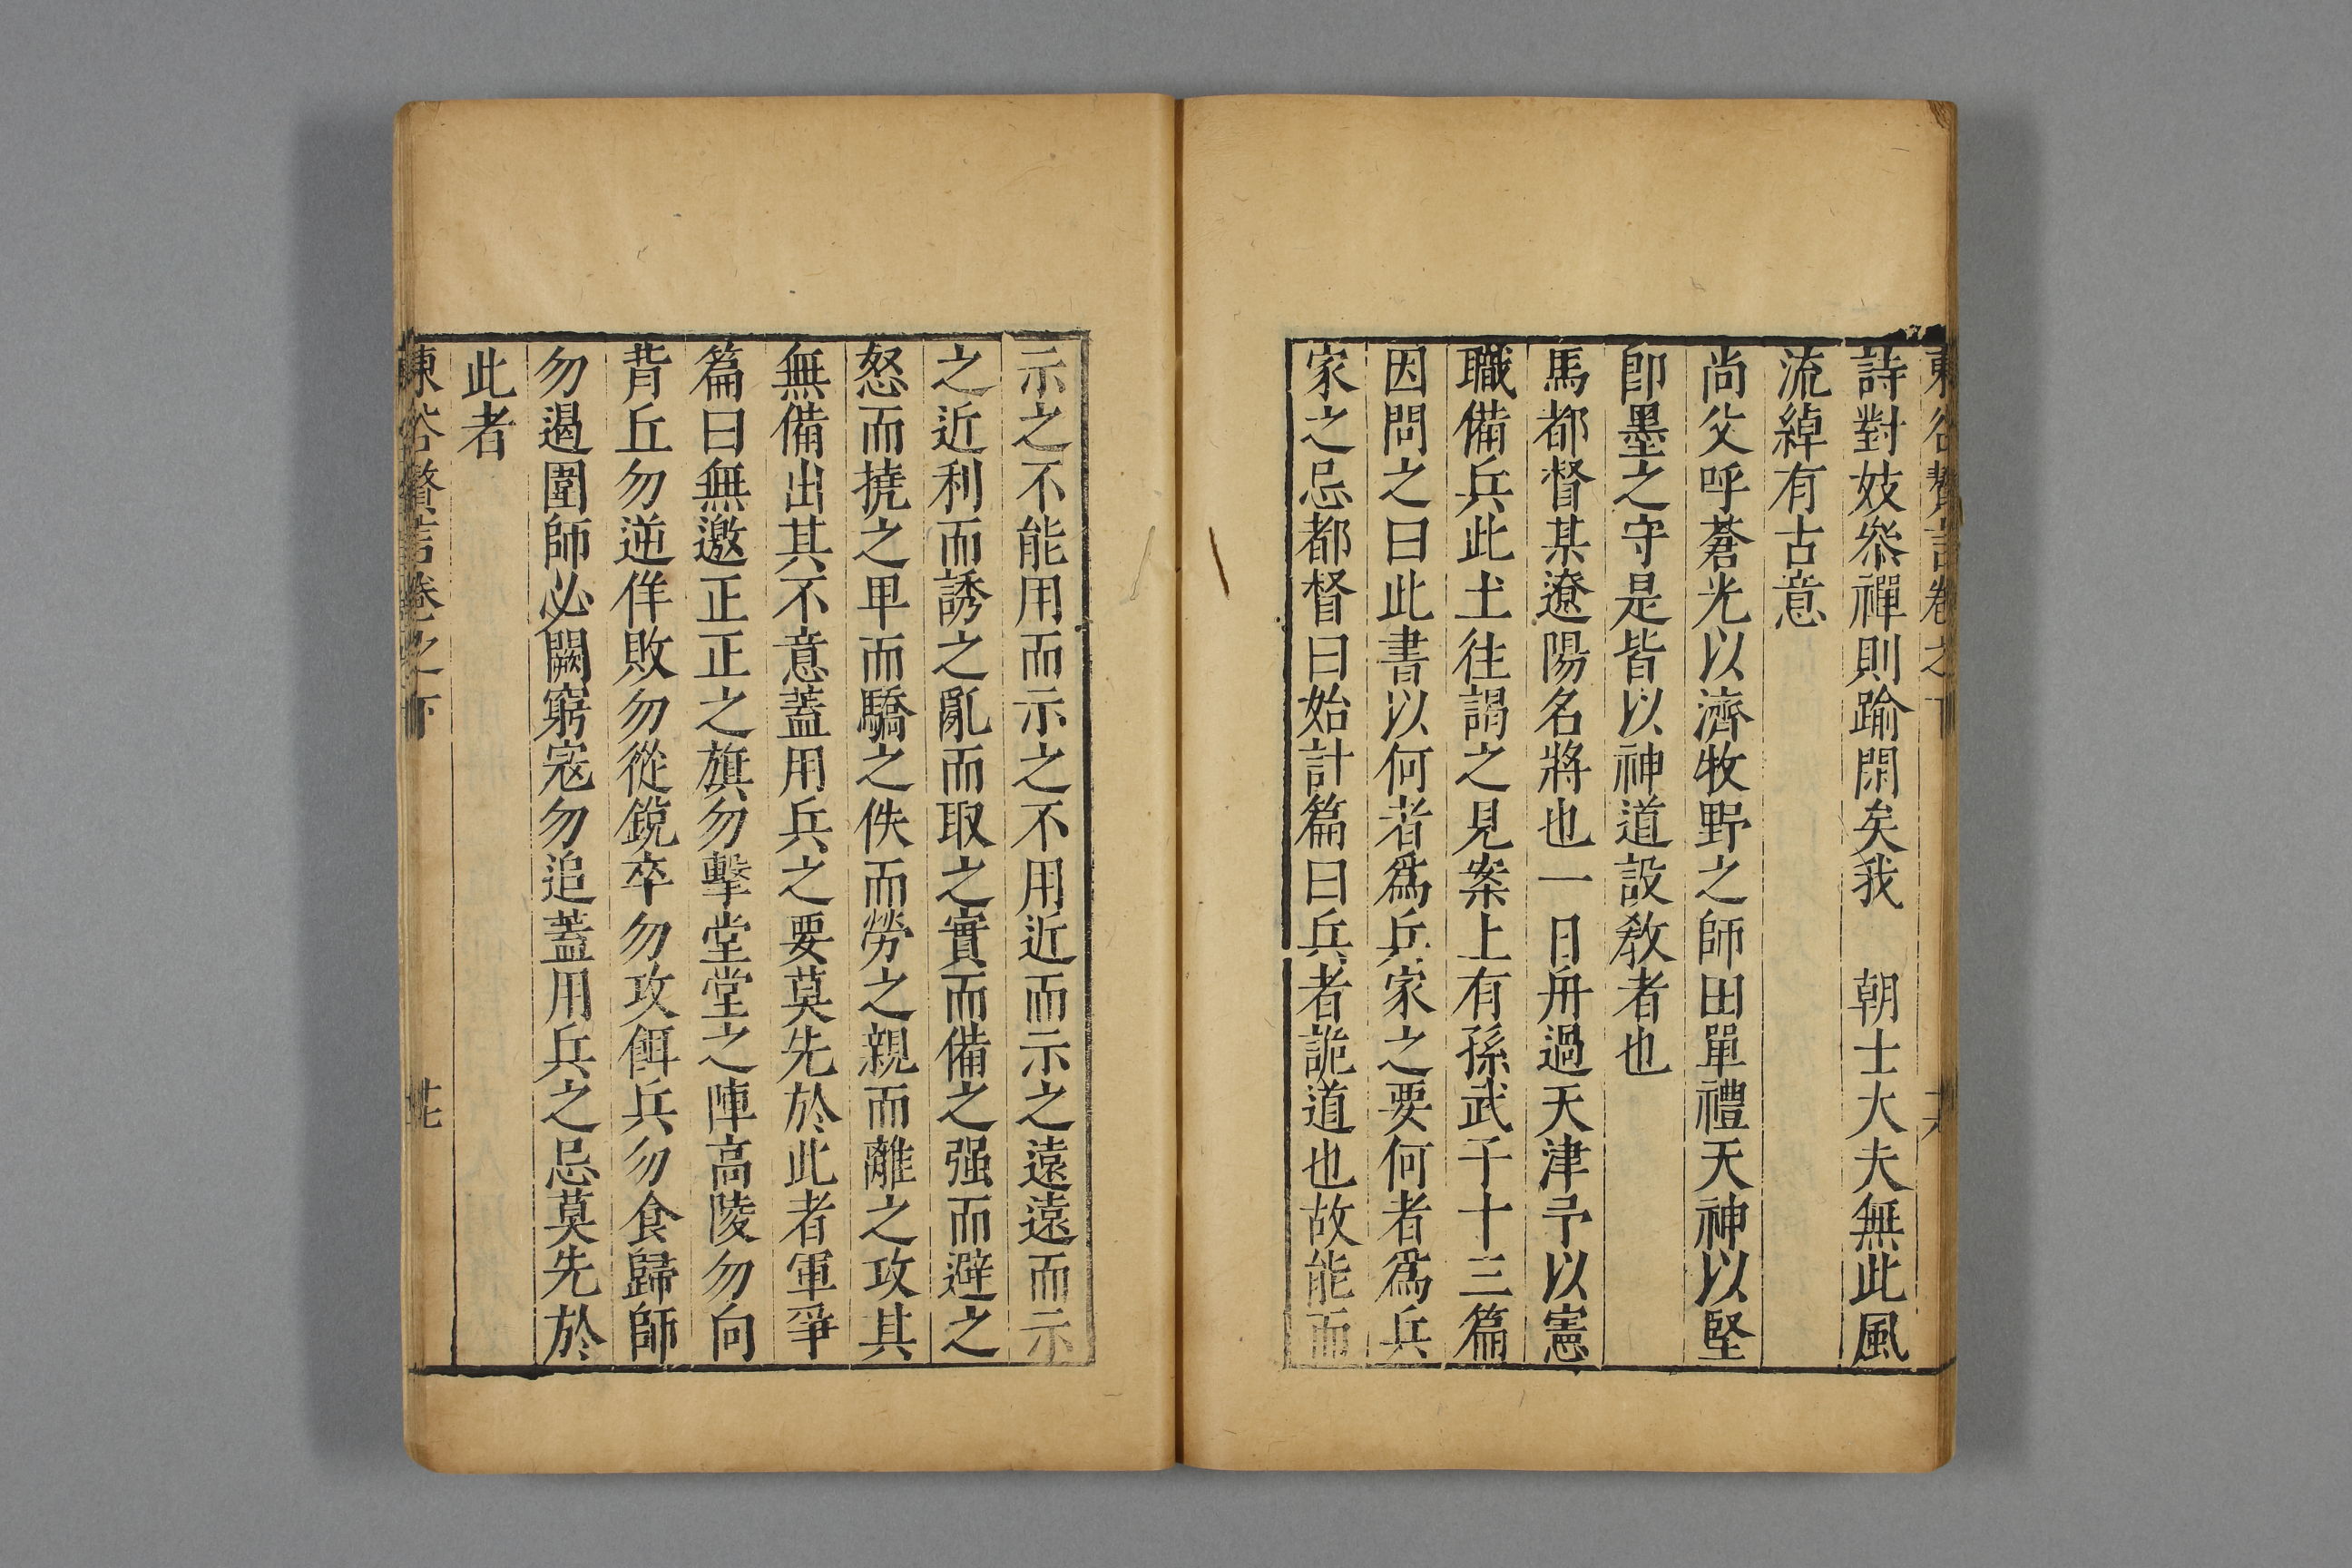 東谷贅言卷之下
詩對妓叅禪則踰閑矣我　朝士大夫無此風
流綽有古意
尚父呼蒼光以濟牧野之師田單禮天神以堅
卽墨之守是皆以神道設敎者也
馬都督某遼陽名將也一日舟過天津予以憲
職備兵此土往謁之見案上有孫武子十三篇
因問之曰此書以何者爲兵家之要何者爲兵
家之忌都督曰始計篇曰兵者詭道也故能而
示之不能用而示之不用近而示之遠遠而示
之近利而誘之亂而取之實而備之强而避之
怒而撓之卑而驕之佚而勞之親而離之攻其
無備出其不意蓋用兵之要莫先於此者軍爭
篇曰無邀正正之旗勿擊堂堂之陣高陵勿向
背丘勿逆佯敗勿從銳卒勿攻餌兵勿食歸師
勿遏圍師必闕窮寇勿追蓋用兵之忌莫先於
此者
東谷贅言卷之下